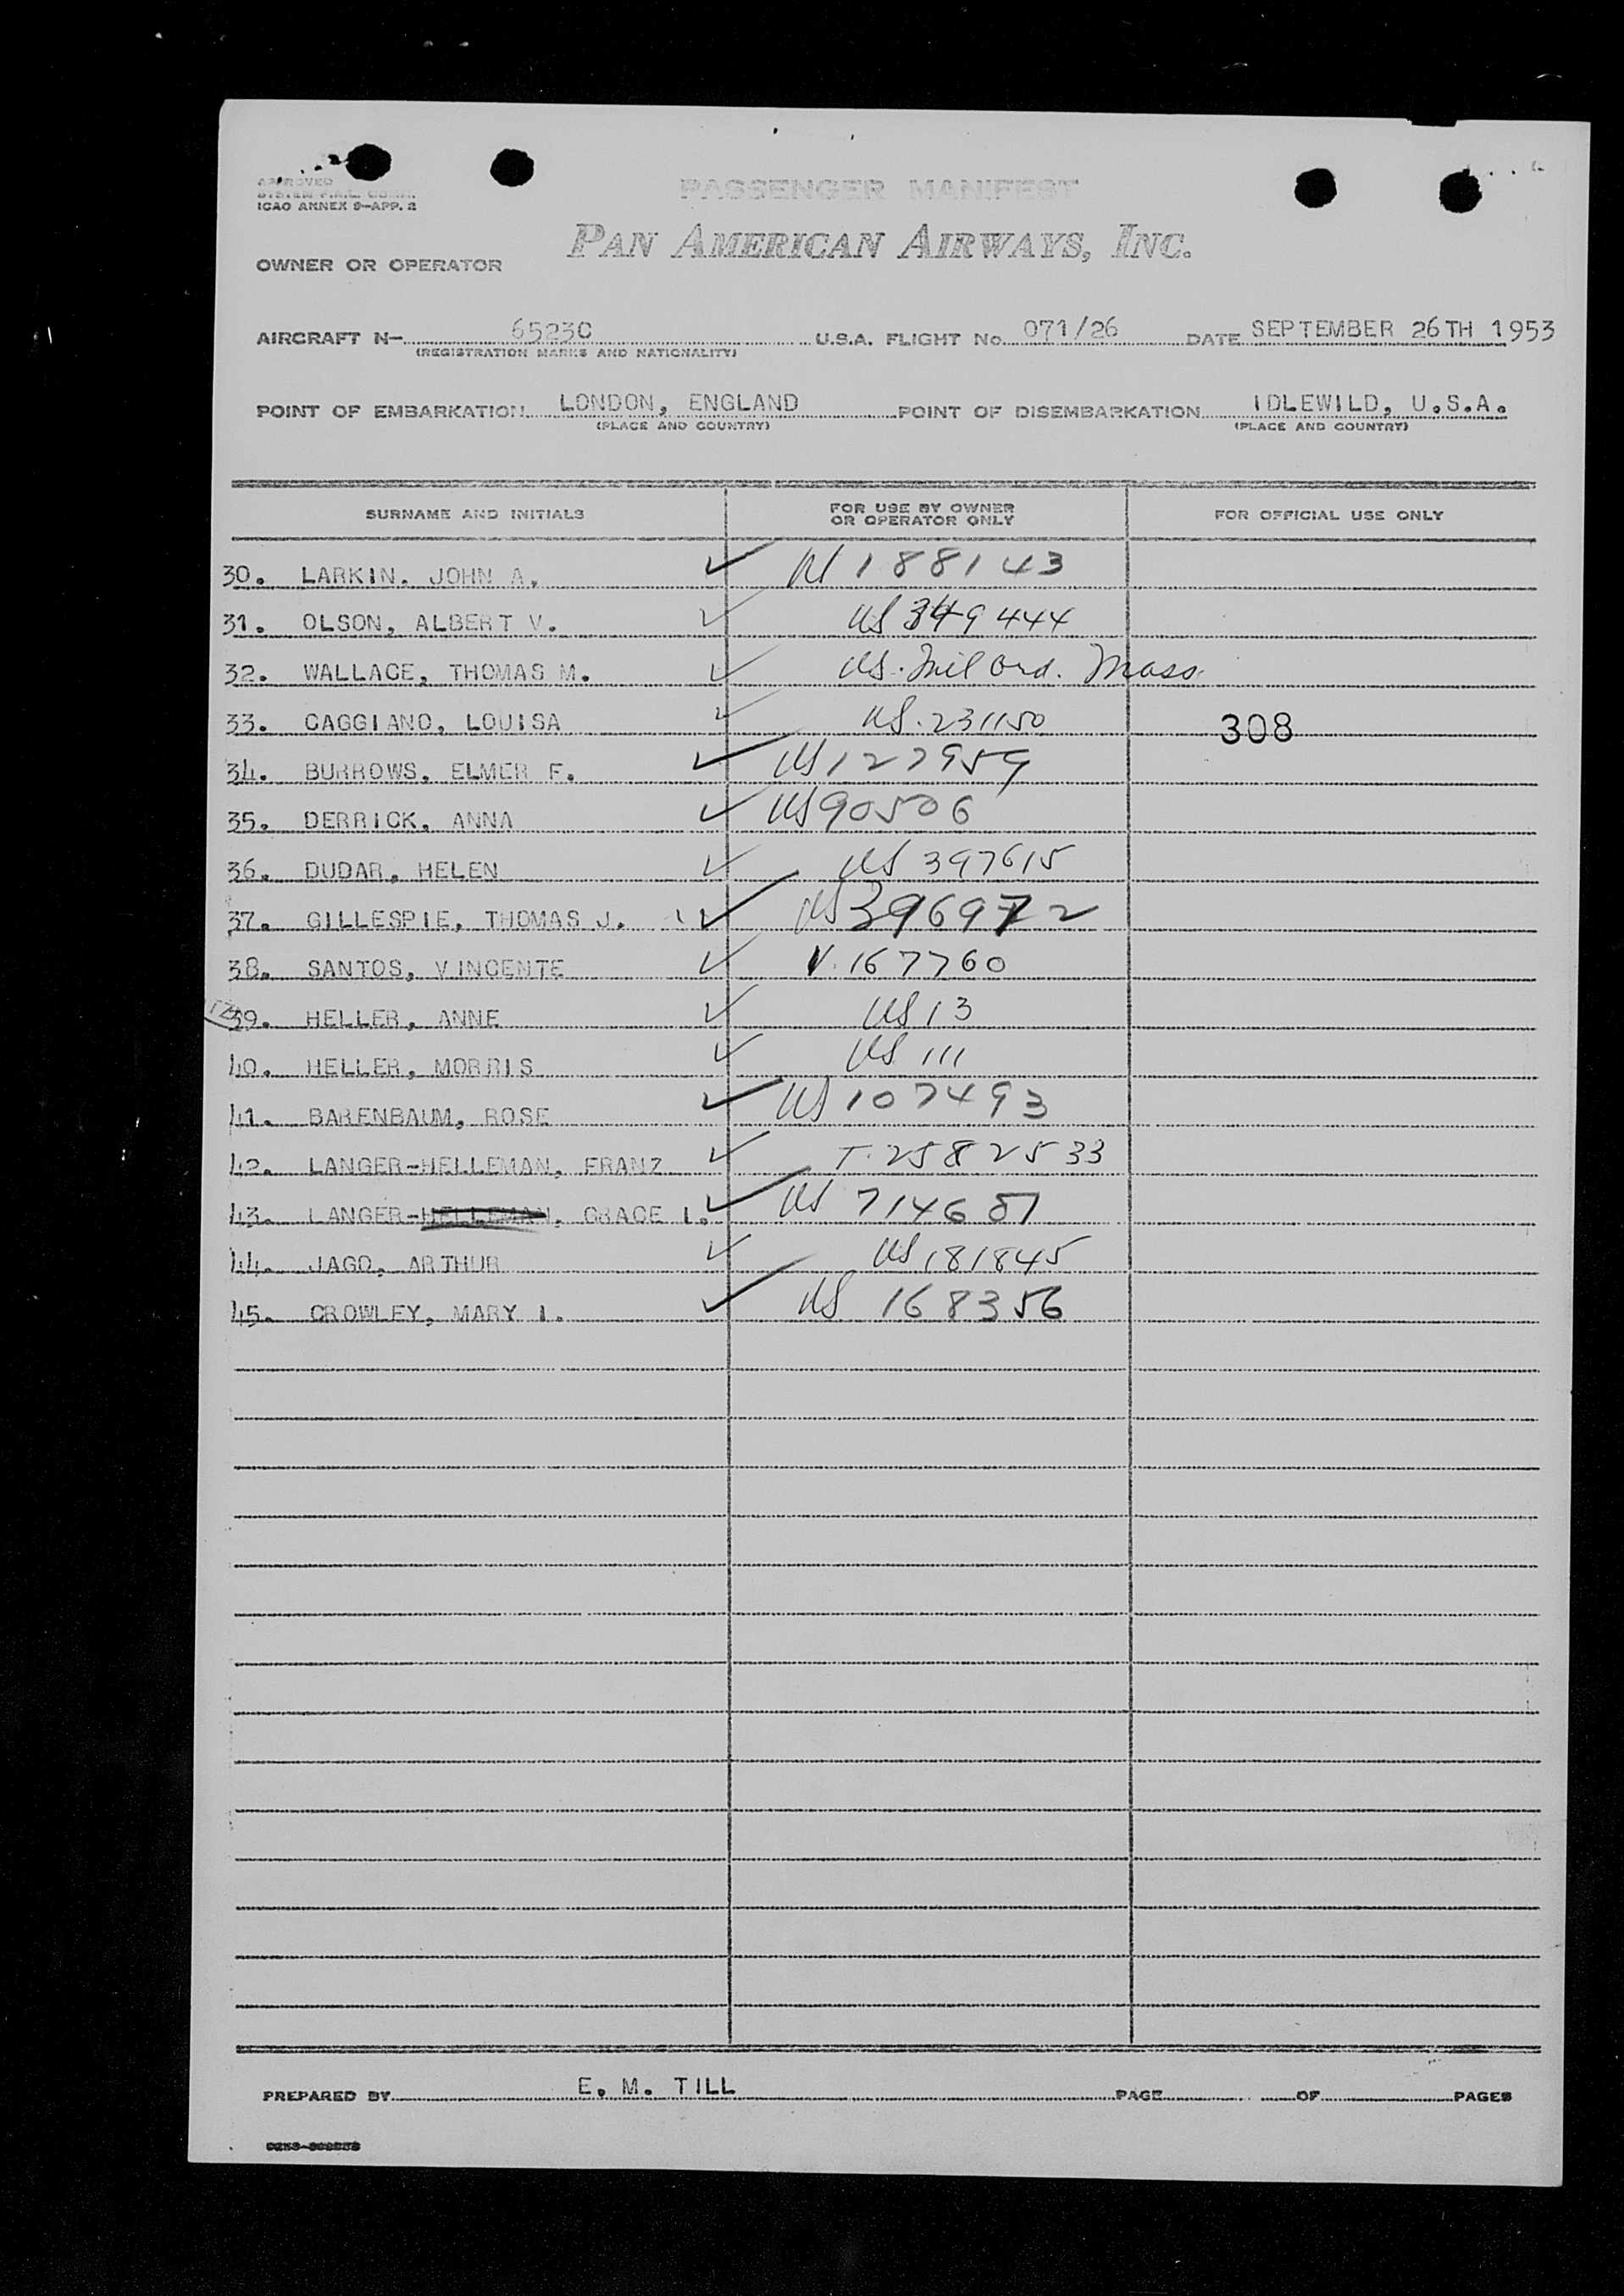 APPROVED
ICAO ANNEX 9-APP. 2
PASSENGER MANIFEST
PAN AMERICAN AIRWAYS, INC.
OWNER OR OPERATOR
AIRCRAFT N- 6523C U.S.A. FLIGHT No. 071/26 DATE SEPTEMBER 26TH 1953
(REGISTRATION MARKS AND NATIONALITY)
POINT OF EMBARKATION LONDON, ENGLAND POINT OF DISEMBARKATION IDLEWILD, U.S.A.
(PLACE AND COUNTRY) (PLACE AND COUNTRY)
SURNAME AND INITIALS FOR USE BY OWNER OR OPERATOR ONLY FOR OFFICIAL USE ONLY
30. LARKIN. JOHN A. ✓ US 188143
31. OLSON, ALBERT V. ✓ US 349444
32. WALLACE, THOMAS M. ✓ US. Mil Ord. Mass.
33. CAGGIANO, LOUISA ✓ US. 231150 308
34. BURROWS, ELMER F. ✓ US 127959
35. DERRICK, ANNA ✓ US 90506
36. DUDAR, HELEN ✓ US 397615
37. GILLESPIE, THOMAS J. ✓ US 396972
38. SANTOS, VINCENTE ✓ V. 167760
39. HELLER, ANNE ✓ US 13
40. HELLER, MORRIS ✓ US 111
41. BARENBAUM, ROSE ✓ US 107493
42. LANGER-HELLEMAN, FRANZ ✓ T. 2582533
43. LANGER-HELLEMAN, GRACE I. ✓ US 714687
44. JAGO, ARTHUR ✓ US 181845
45. CROWLEY, MARY I. ✓ US 168356
PREPARED BY E. M. TILL PAGE OF PAGES